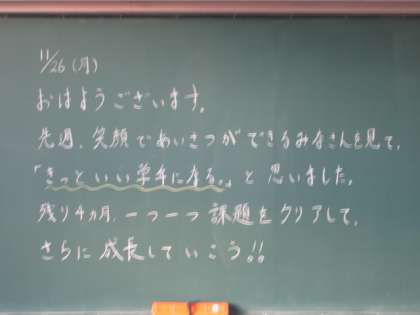 11/26(月)
おはようございます。
先週、笑顔であいさつができるみなさんを見て、
「きっといい学年になる。」と思いました。
残り4ヵ月、一つ一つ課題をクリアして、
さらに成長していこう!!